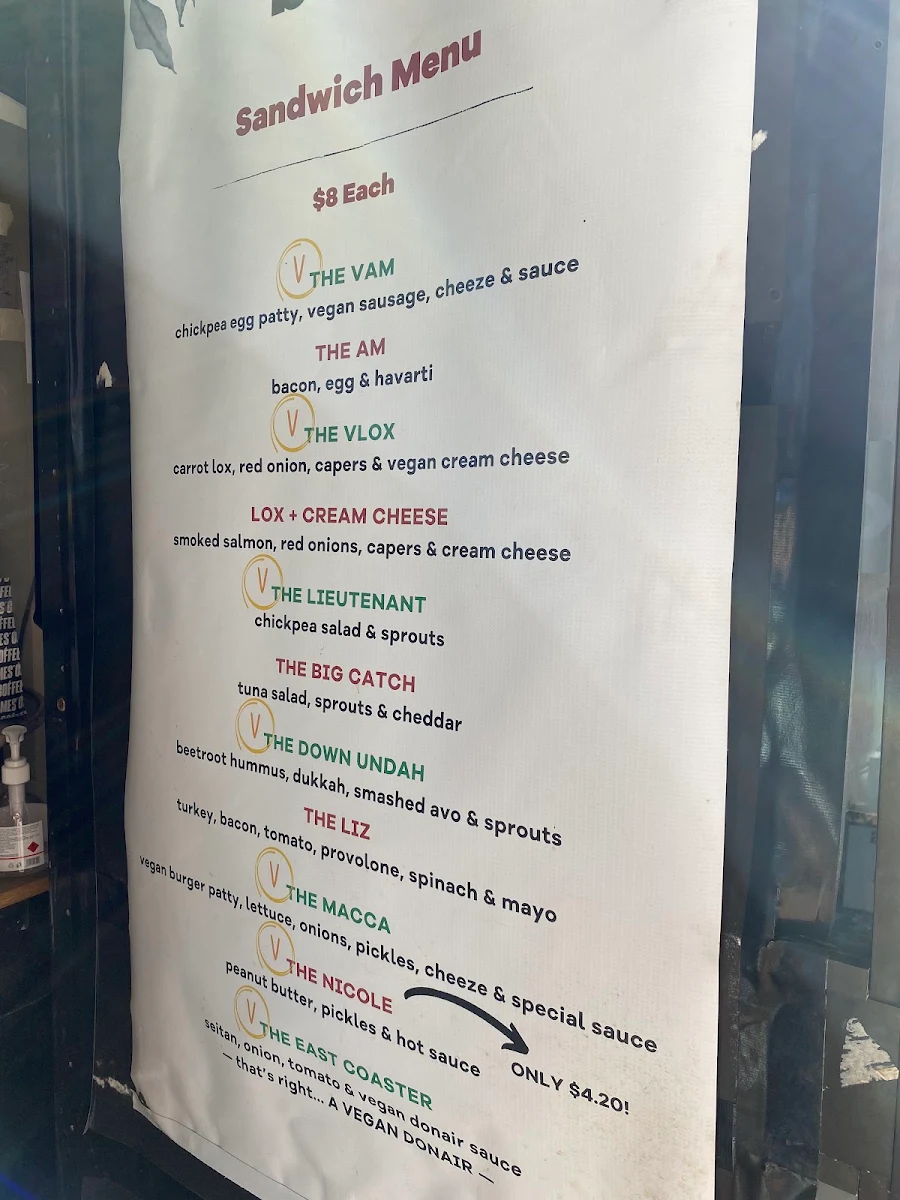 Sandwich Menu
$8 Each
V THE VAM
chickpea egg patty, vegan sausage, cheeze & sauce
THE AM
bacon, egg & havarti
V THE VLOX
carrot lox, red onion, capers & vegan cream cheese
LOX + CREAM CHEESE
smoked salmon, red onions, capers & cream cheese
V THE LIEUTENANT
chickpea salad & sprouts
THE BIG CATCH
tuna salad, sprouts & cheddar
V THE DOWN UNDAH
beetroot hummus, dukkah, smashed avo & sprouts
THE LIZ
turkey, bacon, tomato, provolone, spinach & mayo
V THE MACCA
vegan burger patty, lettuce, onions, pickles, cheeze & special sauce
V THE NICOLE
peanut butter, pickles & hot sauce
ONLY $4.20!
V THE EAST COASTER
seitan, onion, tomato & vegan donair sauce
— that's right... A VEGAN DONAIR —